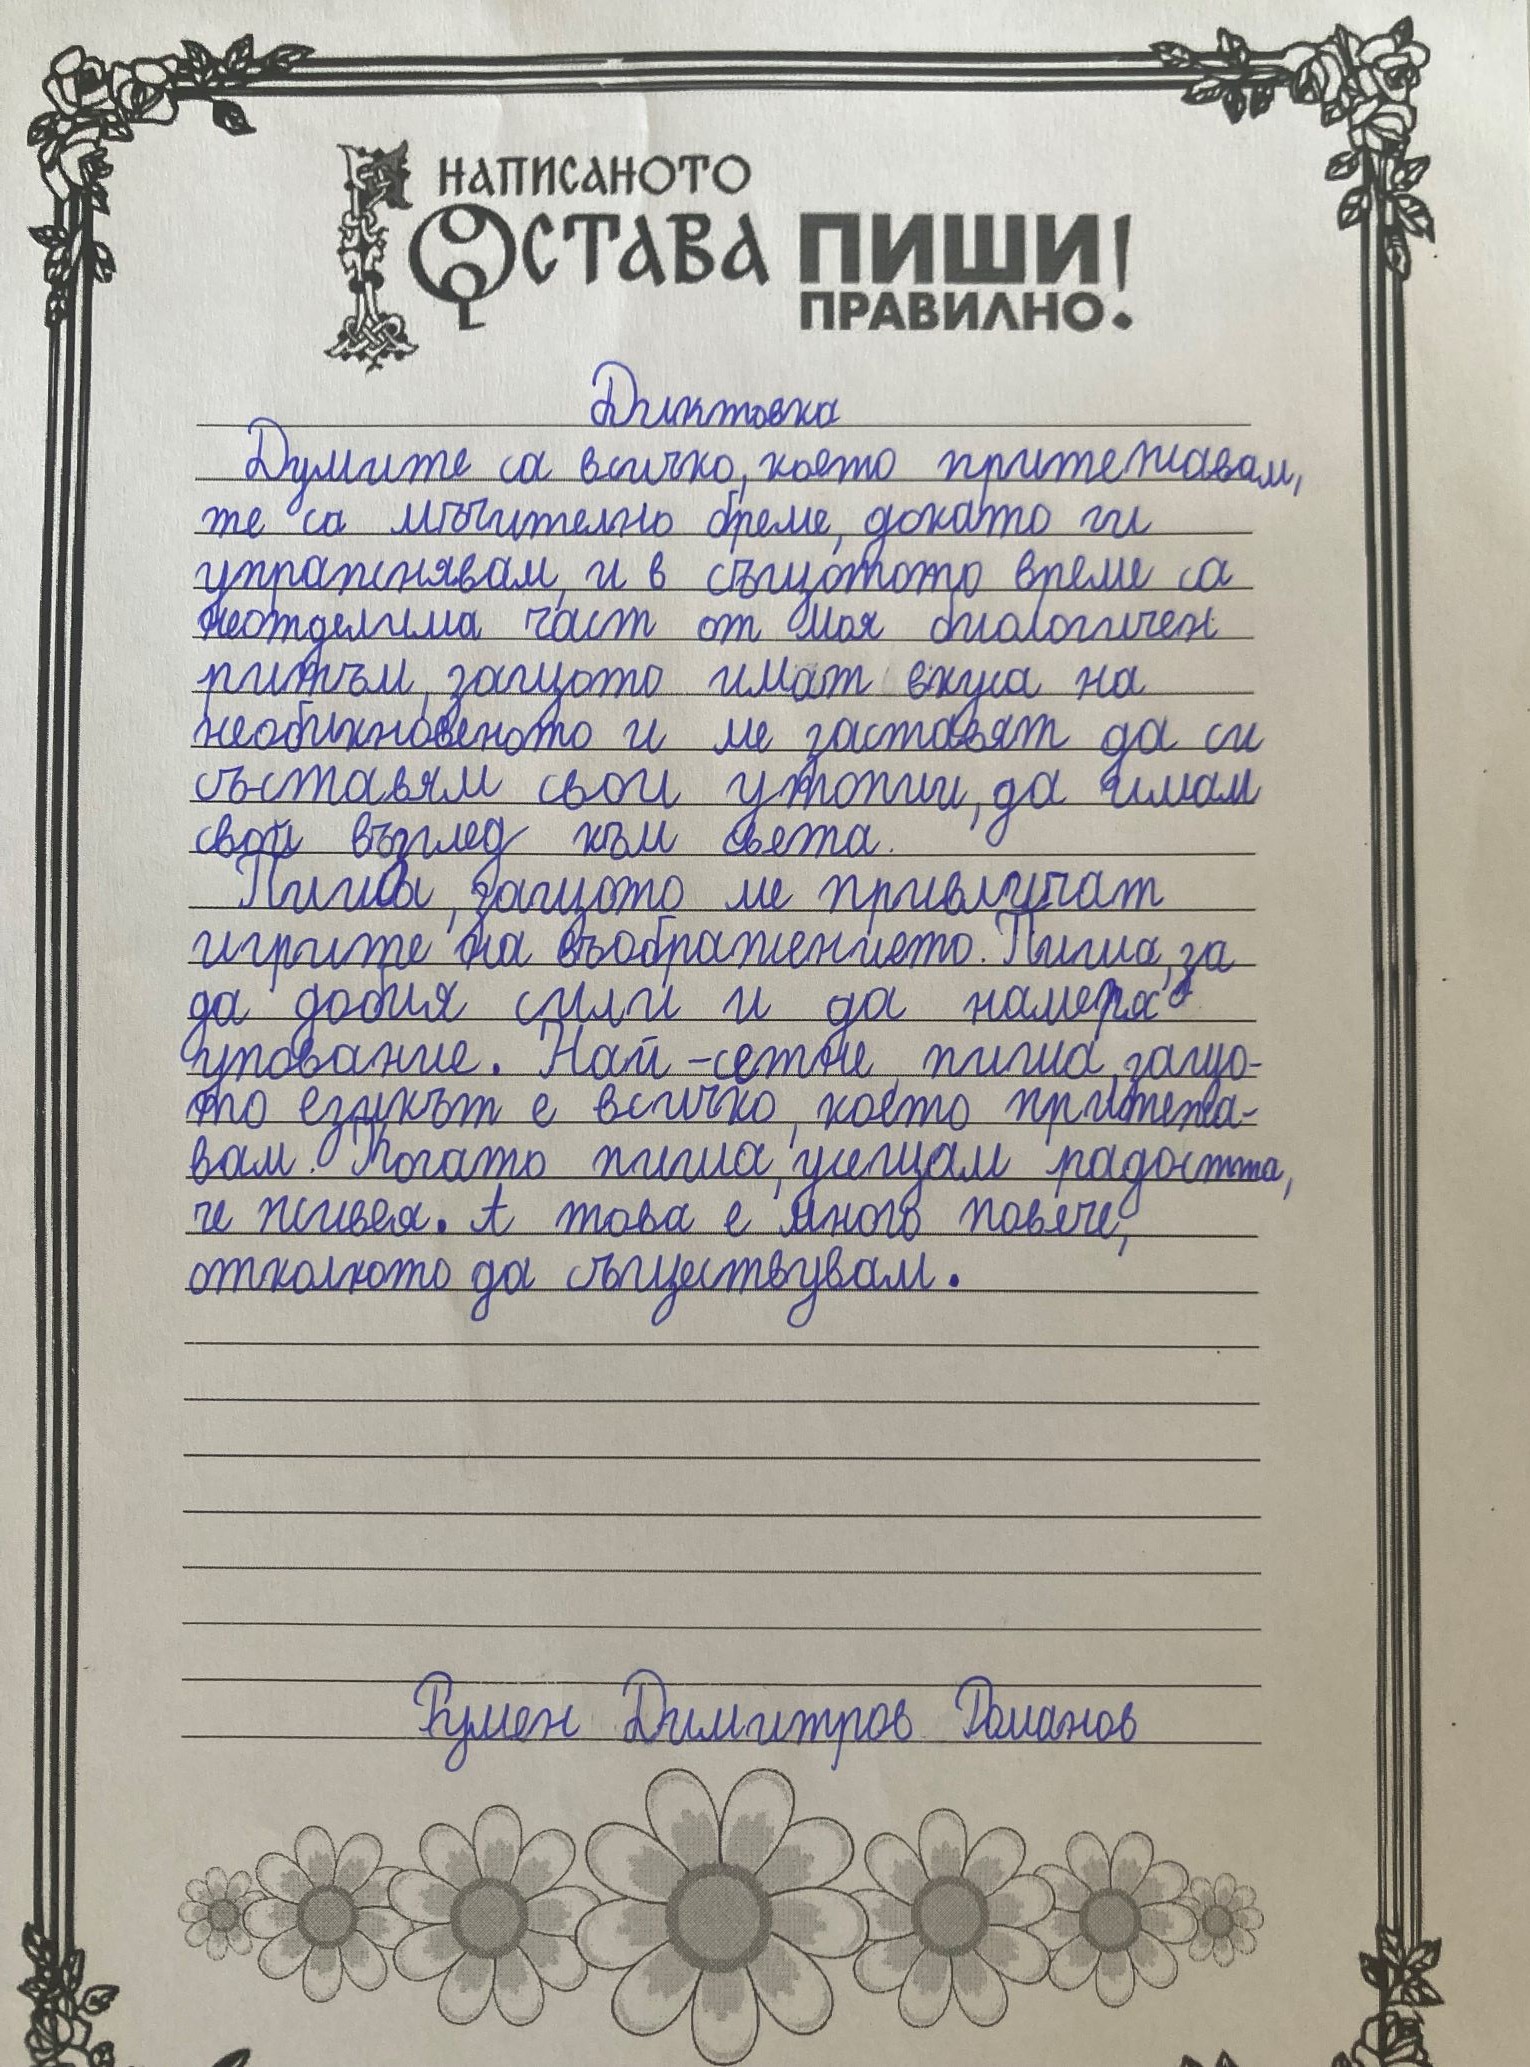 НАПИСАНОТО
ОСТАВА ПИШИ!
ПРАВИЛНО.
Диктовка
Думите са всичко, което притежавам,
те са мъчително бреме, докато ги
упражнявам, и в същото време са
неотделима част от моя биологичен
ритъм, защото имат вкуса на
необикновеното и ме заставят да си
съставям свои утопии, да имам
свой възглед към света.
Пиша, защото ме привличат
игрите на въображението. Пиша, за
да добия сили и да намеря
упование. Най-сетне, пиша, защо-
то езикът е всичко, което притежа-
вам. Когато пиша, усещам радостта,
че живея. А това е много повече,
отколкото да съществувам.
Румен Димитров Романов